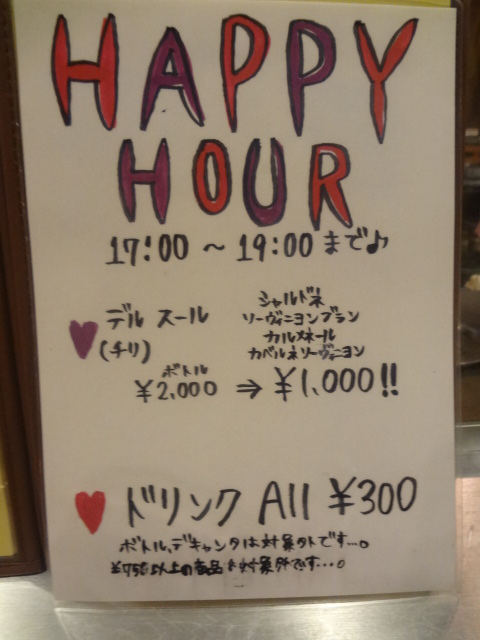 HAPPY
HOUR
17:00 ～ 19:00 まで♪
デル スール
(チリ)
シャルドネ
ソーヴィニヨンブラン
カルメネール
カベルネソーヴィニヨン
ボトル
¥2,000 ⇒ ¥1,000!!
ドリンク All ¥300
ボトル、デキャンタは対象外です…。
以上の商品も対象外です…。